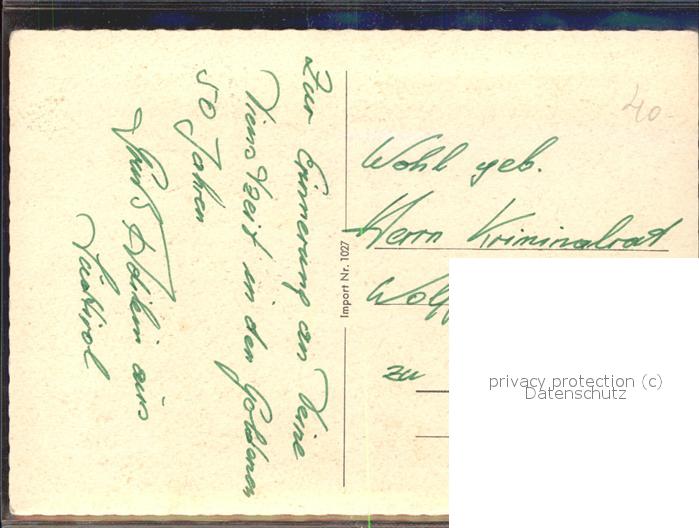 Zur Erinnerung an Deine
Dienstzeit in den Goldenen
50 Jahren
Gruß aus
Südtirol
Import Nr. 1027
40
Wohl geb.
Herrn Kriminalrat
Wolf
zu
privacy protection (c)
Datenschutz